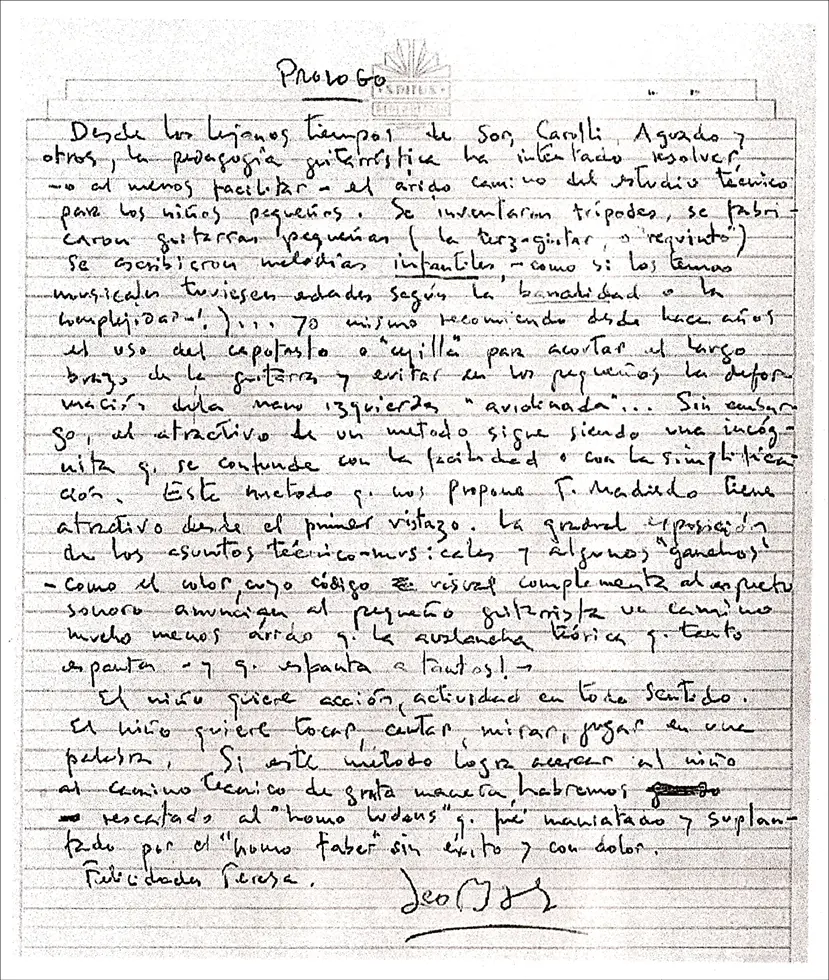 PROLOGO
Desde los lejanos tiempos de Sor, Carulli, Aguado y
otros, la pedagogía guitarrística ha intentado resolver
- o al menos facilitar - el árido camino del estudio técnico
para los niños pequeños. Se inventaron trípodes, se fabri-
caron guitarras pequeñas ( la terz-guitar, o "requinto")
se escribieron melodías infantiles, - como si los temas
musicales tuviesen edades según la banalidad o la
complejidad -! ) ... Yo mismo recomiendo desde hace años
el uso del capotasto o "cejilla" para acortar el largo
brazo de la guitarra y evitar en los pequeños la defor-
mación de la mano izquierda "aviolinada" ... Sin embar-
go, el atractivo de un metodo sigue siendo una incóg-
nita q. se confunde con la facilidad o con la simplifica-
ción. Este metodo q. nos propone T. Madiedo tiene
atractivo desde el primer vistazo. La gradual exposición
de los asuntos técnico-musicales y algunos "ganchos"
- como el color, cuyo código visual complementa al aspecto
sonoro anuncian al pequeño guitarrista un camino
mucho menos árido q. la avalancha teórica q. tanto
espanta - y q. espanta a tantos! -
El niño quiere acción, actividad en todo sentido.
El niño quiere tocar, cantar, mirar, jugar en una
palabra. Si este método logra acercar al niño
al camino técnico de grata manera, habremos
rescatado al "homo ludens" q. fué maniatado y suplan-
tado por el "homo faber" sin éxito y con dolor.
Felicidades Teresa.